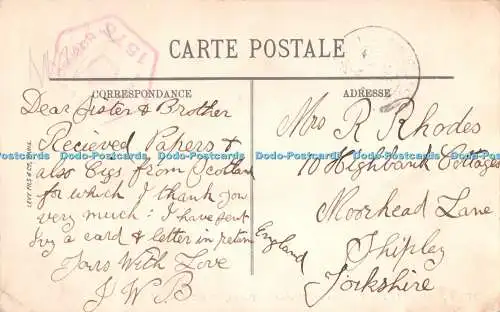 1579
CARTE POSTALE
CORRESPONDANCE
Dear Sister & Brother
Recieved Papers &
also Cigs from Scotland
for which I thank you
very much: I have sent
Ivy a card & letter in return
Yours With Love
J W B
ADRESSE
Mrs R Rhodes
10 Highbank Cottages
Moorhead Lane
Shipley
Yorkshire
England
Dodo Postcards Dodo Postcards Dodo Postcards Dodo Postcards Dodo Postcards Dodo Postcards